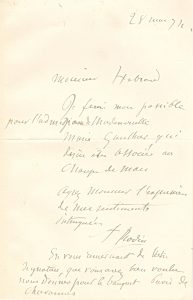 Monsieur Hébrard
Je ferai mon possible
pour l'admission de Mademoiselle
Marie Gauthier qui
désire être associée au
Champ de mars
agréez Monsieur l'expression
de mes sentiments
Rodin
En vous remerciant de votre
que vous avez bien voulu
nous donner pour le banquet Puvis de
Chavannes